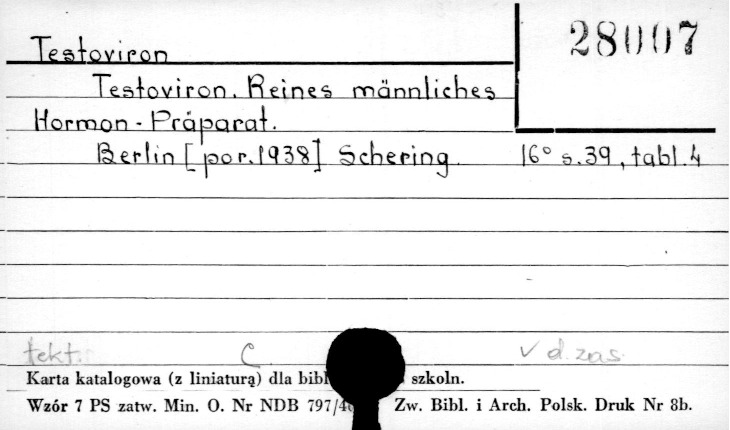 28007
Testoviron
Testoviron. Reines männliches
Hormon-Präparat.
Berlin [por. 1938] Schering. 16° s. 39, tabl. 4
tekt. C. √ d. zas.
Karta katalogowa (z liniaturą) dla szkoln.
Wzór 7 PS zatw. Min. O. Nr NDB Zw. Bibl. i Arch. Polsk. Druk Nr 8b.